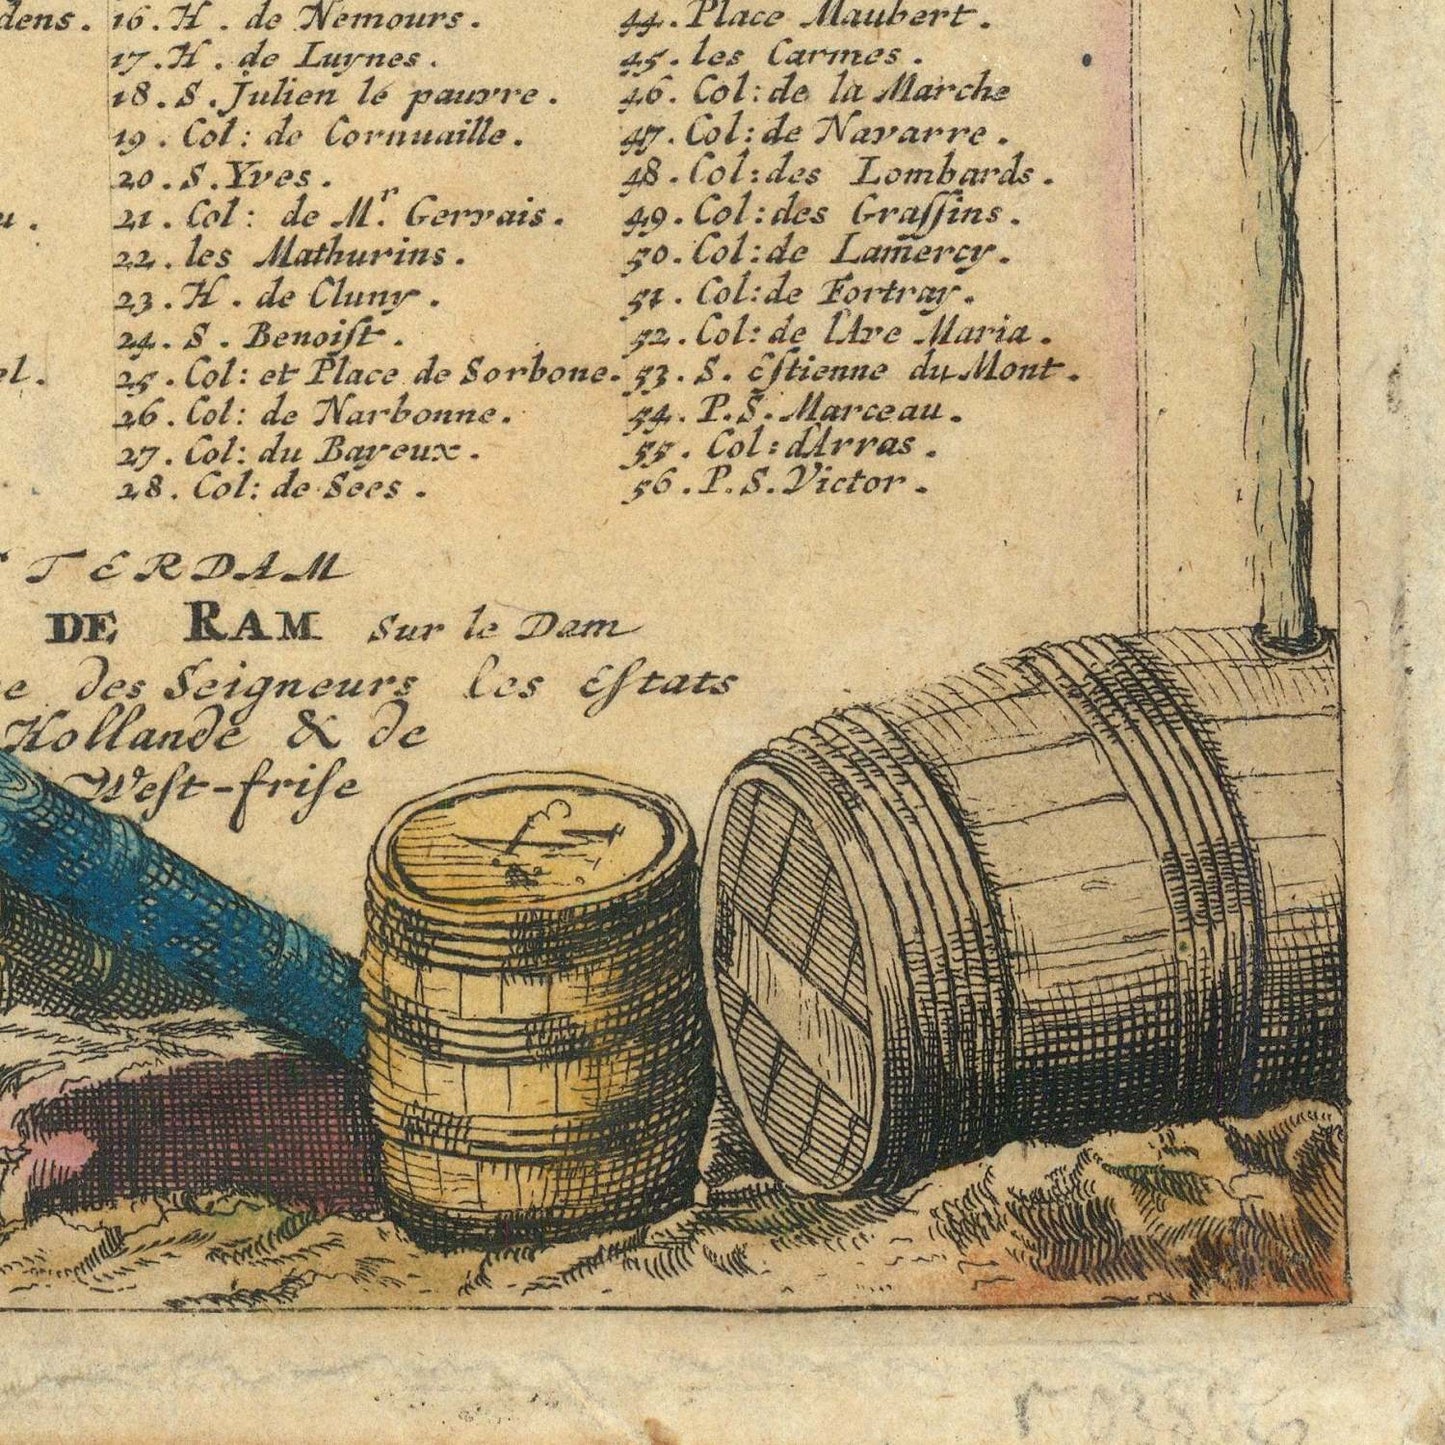 dens.
16. H. de Nemours.
17. H. de Luynes.
18. S. Julien le pauvre.
19. Col: de Cornuaille.
20. S. Yves.
21. Col: de Mr. Gervais.
22. les Mathurins.
23. H. de Cluny.
24. S. Benoiſt.
el.
25. Col: et Place de Sorbone.
26. Col: de Narbonne.
27. Col: du Bayeux.
28. Col: de Sees.
44. Place Maubert.
45. les Carmes.
46. Col: de la Marche
47. Col: de Navarre.
48. Col: des Lombards.
49. Col: des Graſſins.
50. Col: de Lam̄ercy.
51. Col: de Fortray.
52. Col: de l'Ave Maria.
53. S. Eſtienne du Mont.
54. P. S. Marceau.
55. Col: d'Arras.
56. P. S. Victor.
TERDAM
DE RAM Sur le Dam
des Seigneurs les Eſtats
Hollande & de
Weſt-friſe